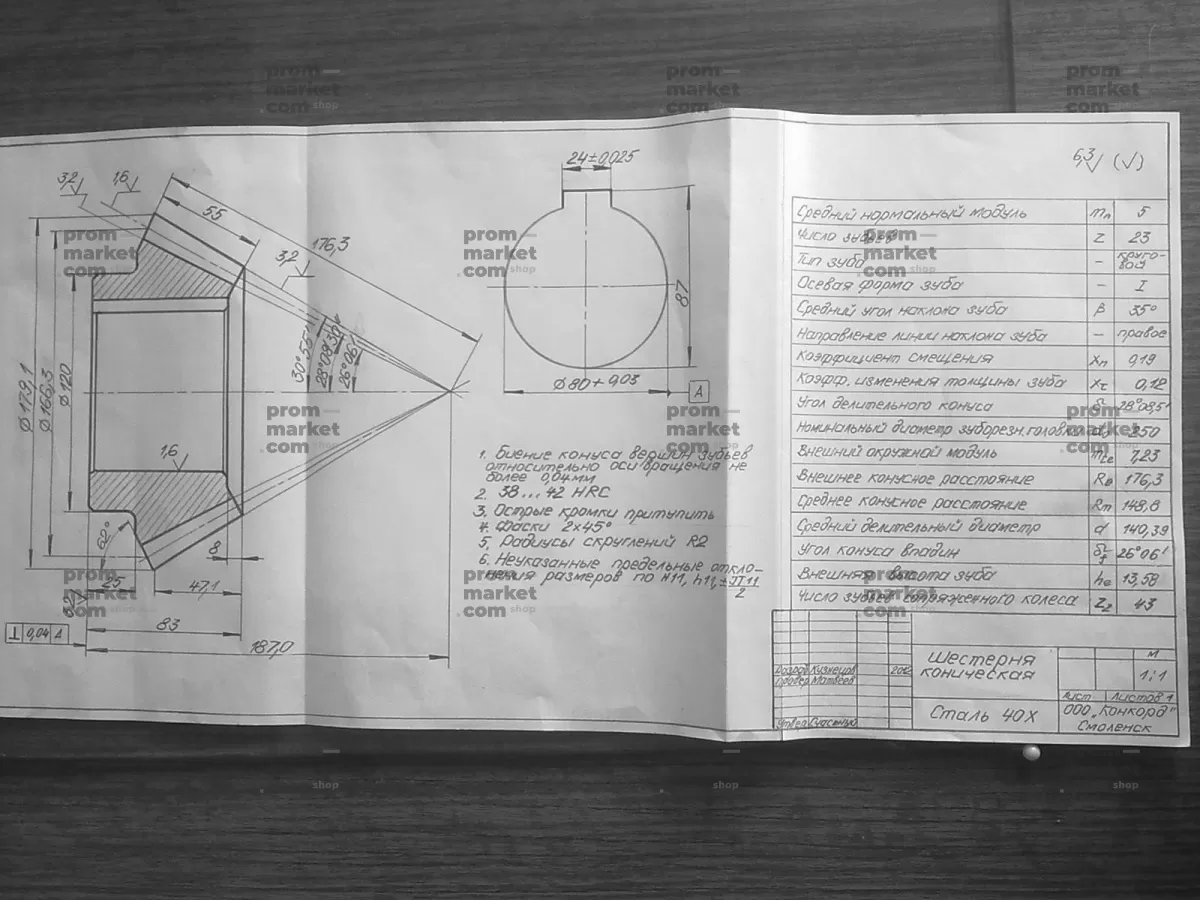 3,2
1,6
55
176,3
3,2
30°55'
28°08,30"
26°06'
Ø 179,1
Ø 166,3
Ø 120
1,6
60°
8
25
47,1
3,2
83
187,0
⊥ 0,04 А
24±0,025
87
Ø 80+0,03
А
6,3 (√)
1. Биение конуса вершин зубьев
относительно оси вращения не
более 0,04мм
2. 38...42 HRC
3. Острые кромки притупить
4. Фаски 2х45°
5. Радиусы скруглений R2
6. Неуказанные предельные откло-
нения размеров по Н11, h11, ±JT11/2
Средний нормальный модуль mn 5
Число зубьев z 23
Тип зуба – круго-
вой
Осевая форма зуба – I
Средний угол наклона зуба β 35°
Направление линии наклона зуба – правое
Коэффициент смещения Xn 0,19
Коэфф. изменения толщины зуба Xτ 0,12
Угол делительного конуса δ 28°08,5'
Номинальный диаметр зуборезн. головки 250
Внешний окружной модуль mte 7,23
Внешнее конусное расстояние Re 176,3
Среднее конусное расстояние Rm 148,8
Средний делительный диаметр d 140,39
Угол конуса впадин δf 26°06'
Внешняя высота зуба he 13,58
Число зубьев сопряженного колеса Z2 43
Разраб. Кузнецов 2012
Провер. Матвеев
Утвер.
Шестерня
коническая
Сталь 40Х
М
1:1
Лист Листов 1
ООО „Конкорд"
Смоленск
prom
market
com shop